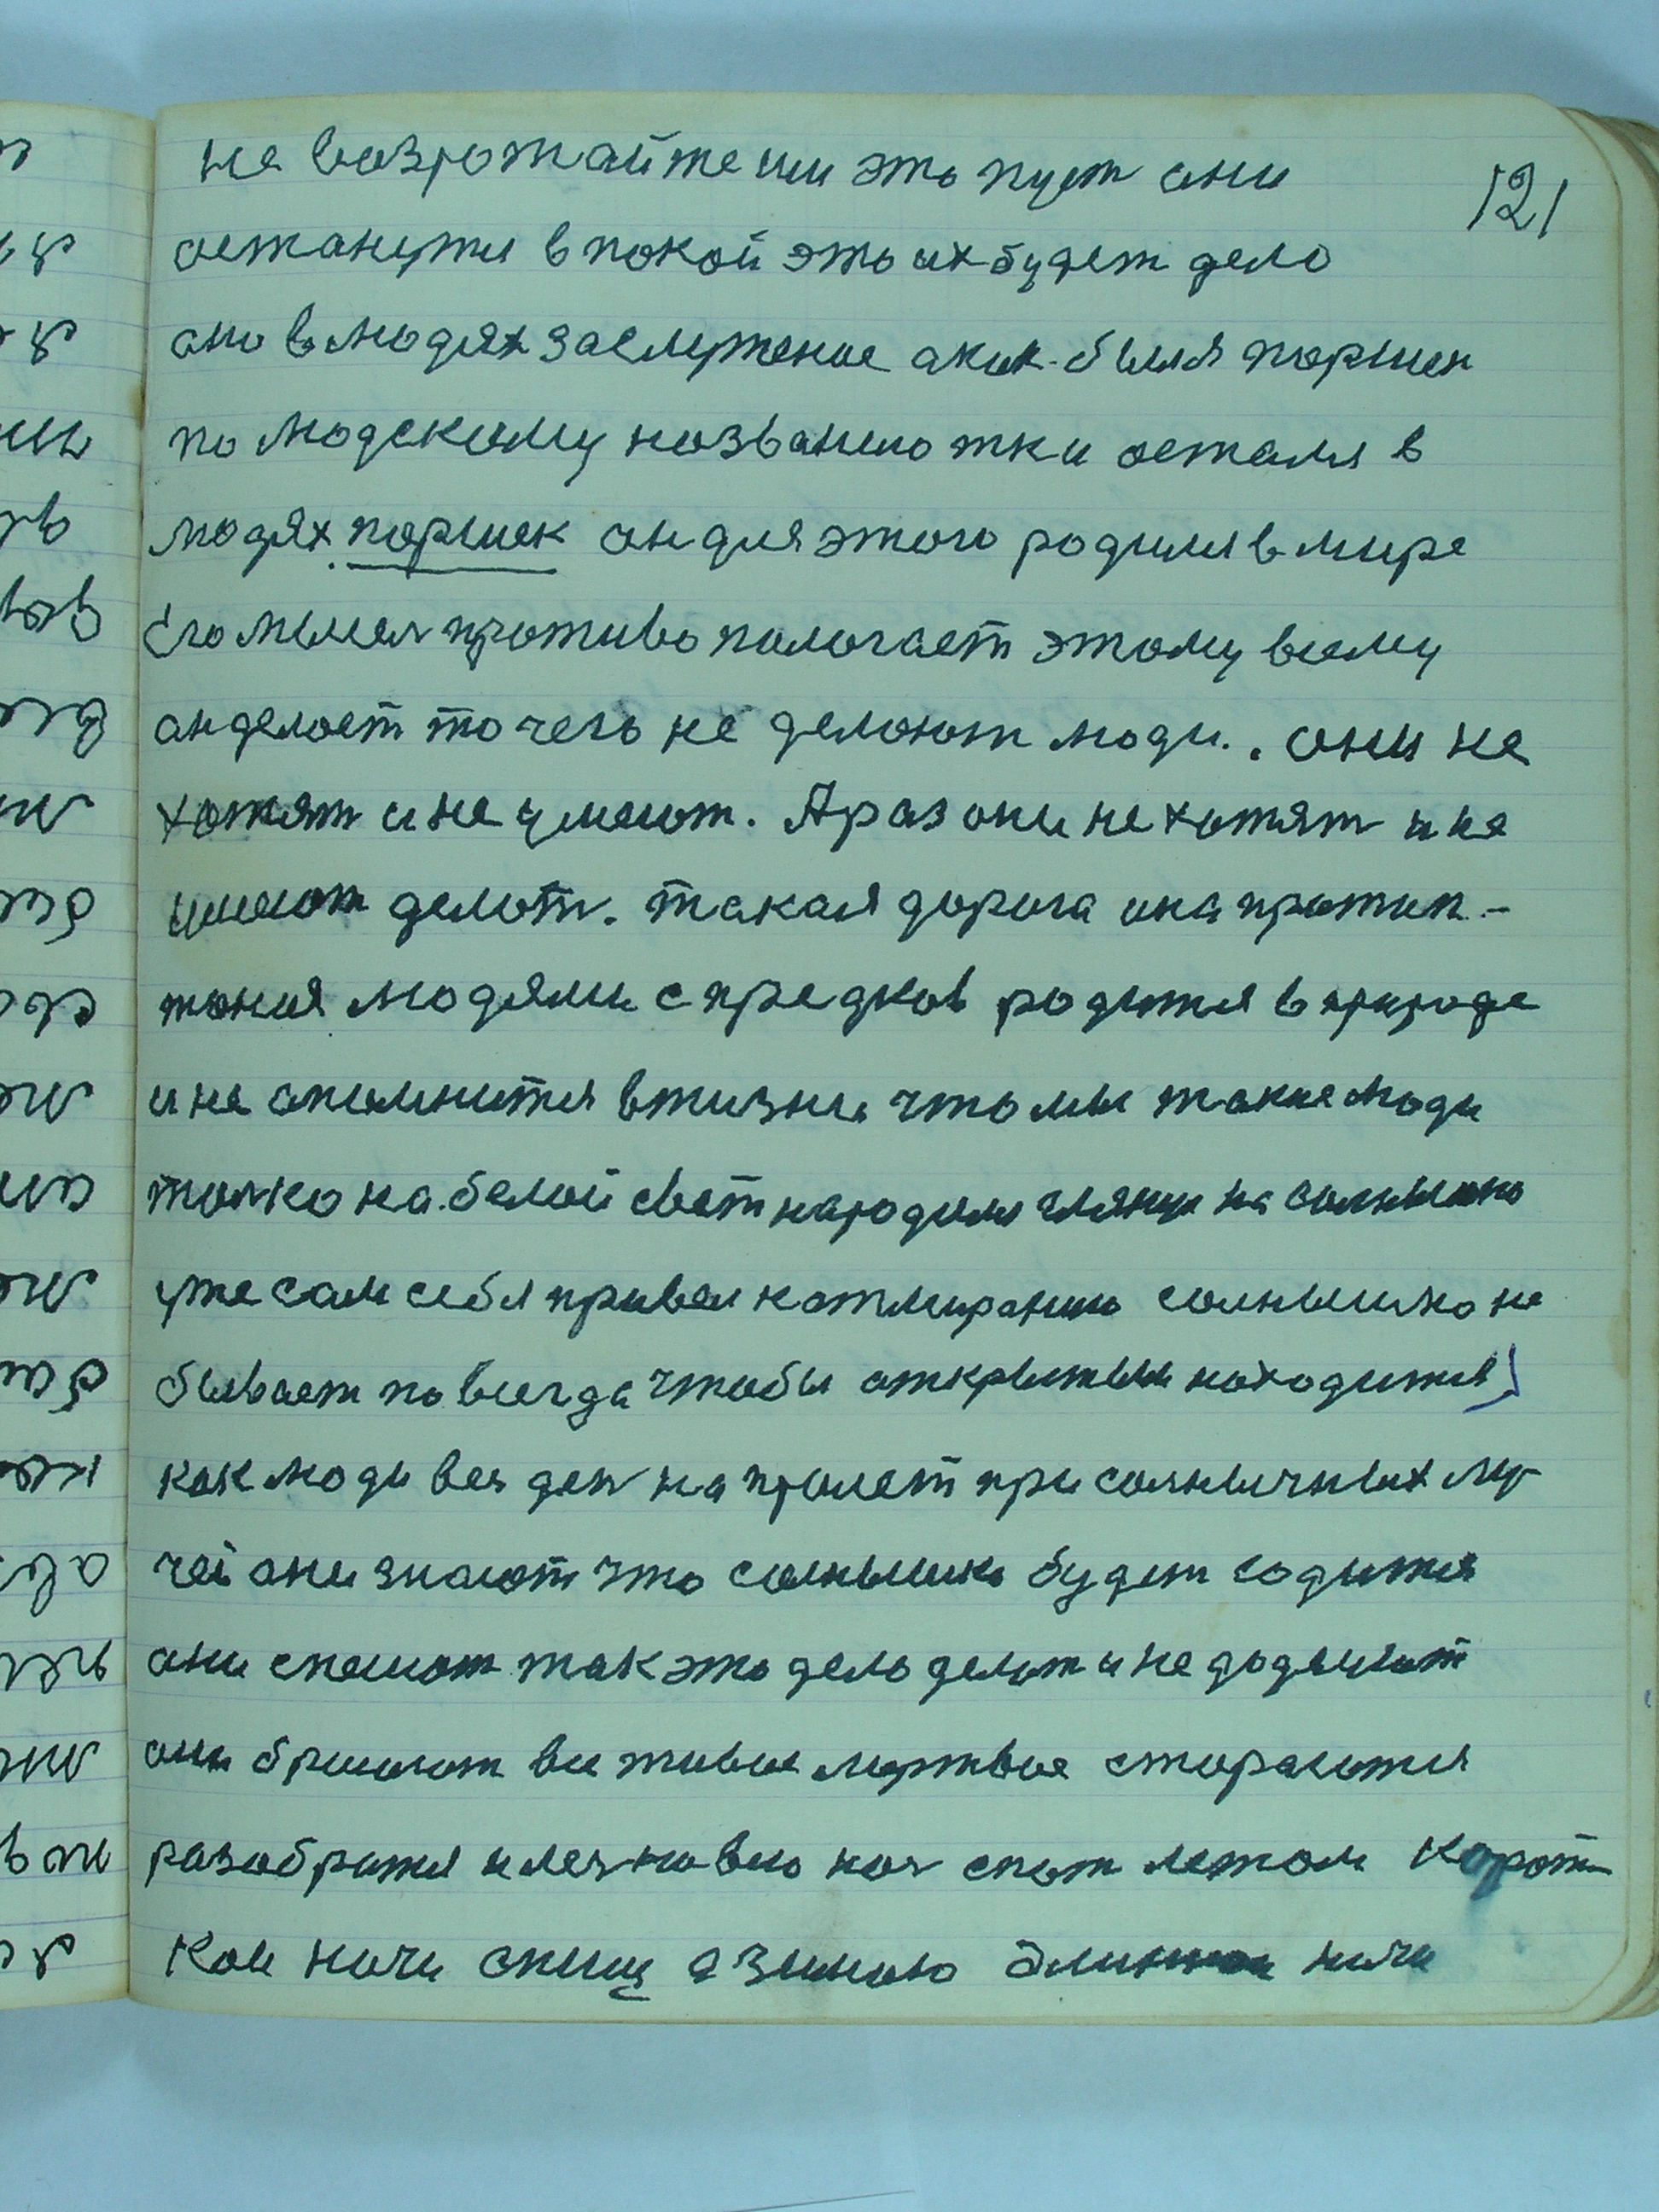 121
не возрожайте им это пуст они
останутся в покой это их будет дело
оно в людях заслуженое а как был я поршек
по людскому названию тки остался в
людях поршек он для этого родился в мире
Его мысля противо полочает этому всему
он делает то чего не делоют люди.. они не
хотят и не умеют. А раз они не хотят и не
умеют делоть. такая дорога она протоп-
тоная людями с предков родится в природе
и не опомнится в жизни что мы такие люди
толко на белой свет народился глянул на солнышко
уже сам себя привел к отмиранию солнышко не
бывает по всегда чтобы открытым находится)
как люди вся ден на пролет при солнычных лу
чей они знают что солнышко будет содится
они спешот так это дело делот и не доделыют
они бросают все живое мертвое стораются
разобратся и леч на всю ноч спат летом корот-
кои ночи сплу а зимою длинои ночи